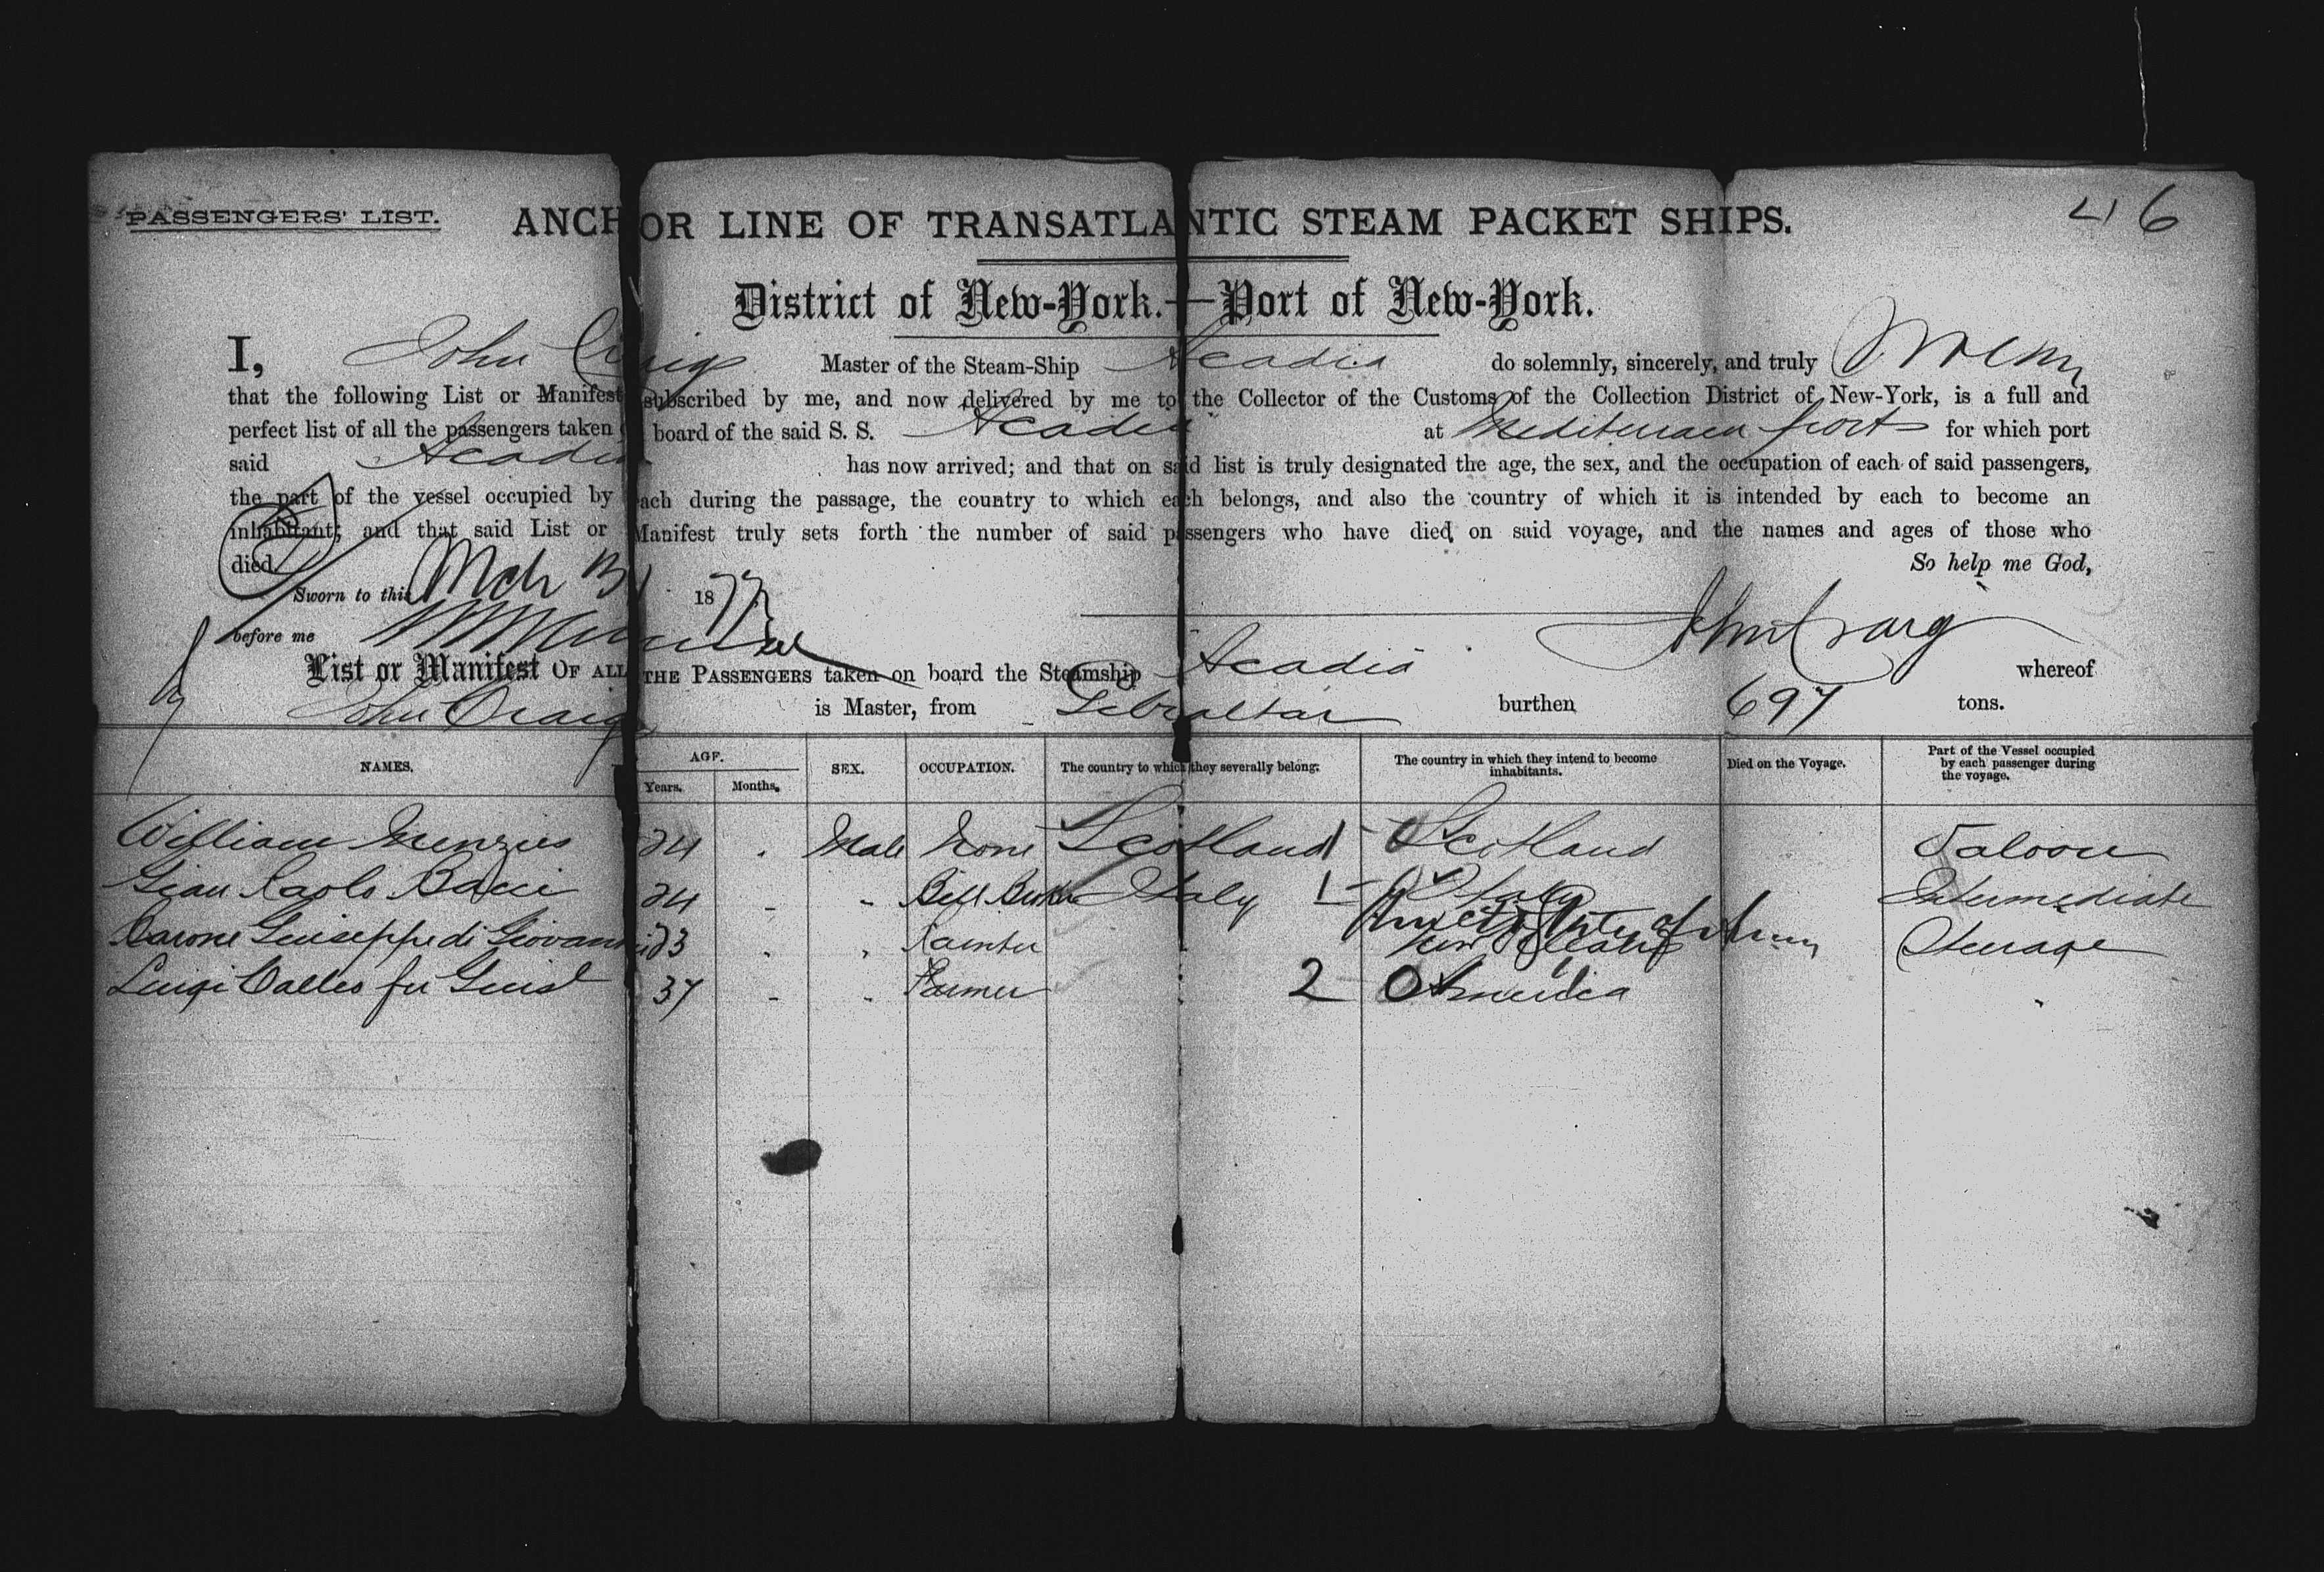 PASSENGERS' LIST. ANCHOR LINE OF TRANSATLANTIC STEAM PACKET SHIPS. 46
District of New-York.—Port of New-York.
I, John Craig Master of the Steam-Ship Acadia do solemnly, sincerely, and truly
that the following List or Manifest subscribed by me, and now delivered by me to the Collector of the Customs of the Collection District of New-York, is a full and
perfect list of all the passengers taken board of the said S. S. Acadia at port for which port
said Acadia has now arrived; and that on said list is truly designated the age, the sex, and the occupation of each of said passengers,
the part of the vessel occupied by each during the passage, the country to which each belongs, and also the country of which it is intended by each to become an
inhabitant; and that said List or Manifest truly sets forth the number of said passengers who have died on said voyage, and the names and ages of those who
died. So help me God,
Sworn to this Mch 1873 John Craig
before me
List or Manifest OF ALL THE PASSENGERS taken on board the Steamship Acadia whereof
John Craig is Master, from Gibraltar burthen 697 tons.
NAMES. AGE. SEX. OCCUPATION. The country to which they severally belong. The country in which they intend to become inhabitants. Died on the Voyage. Part of the Vessel occupied by each passenger during the voyage.
Years. Months.
William Menzies 24 . Male None Scotland 1 Scotland Saloon
Gian Paolo Bacci 24 - " Italy 1 Italy Intermediate
Barone Giuseppe di Giovanni 23 . " Painter New Orleans Steerage
Luigi fu Guisl 37 - " Farmer 2 0 America "